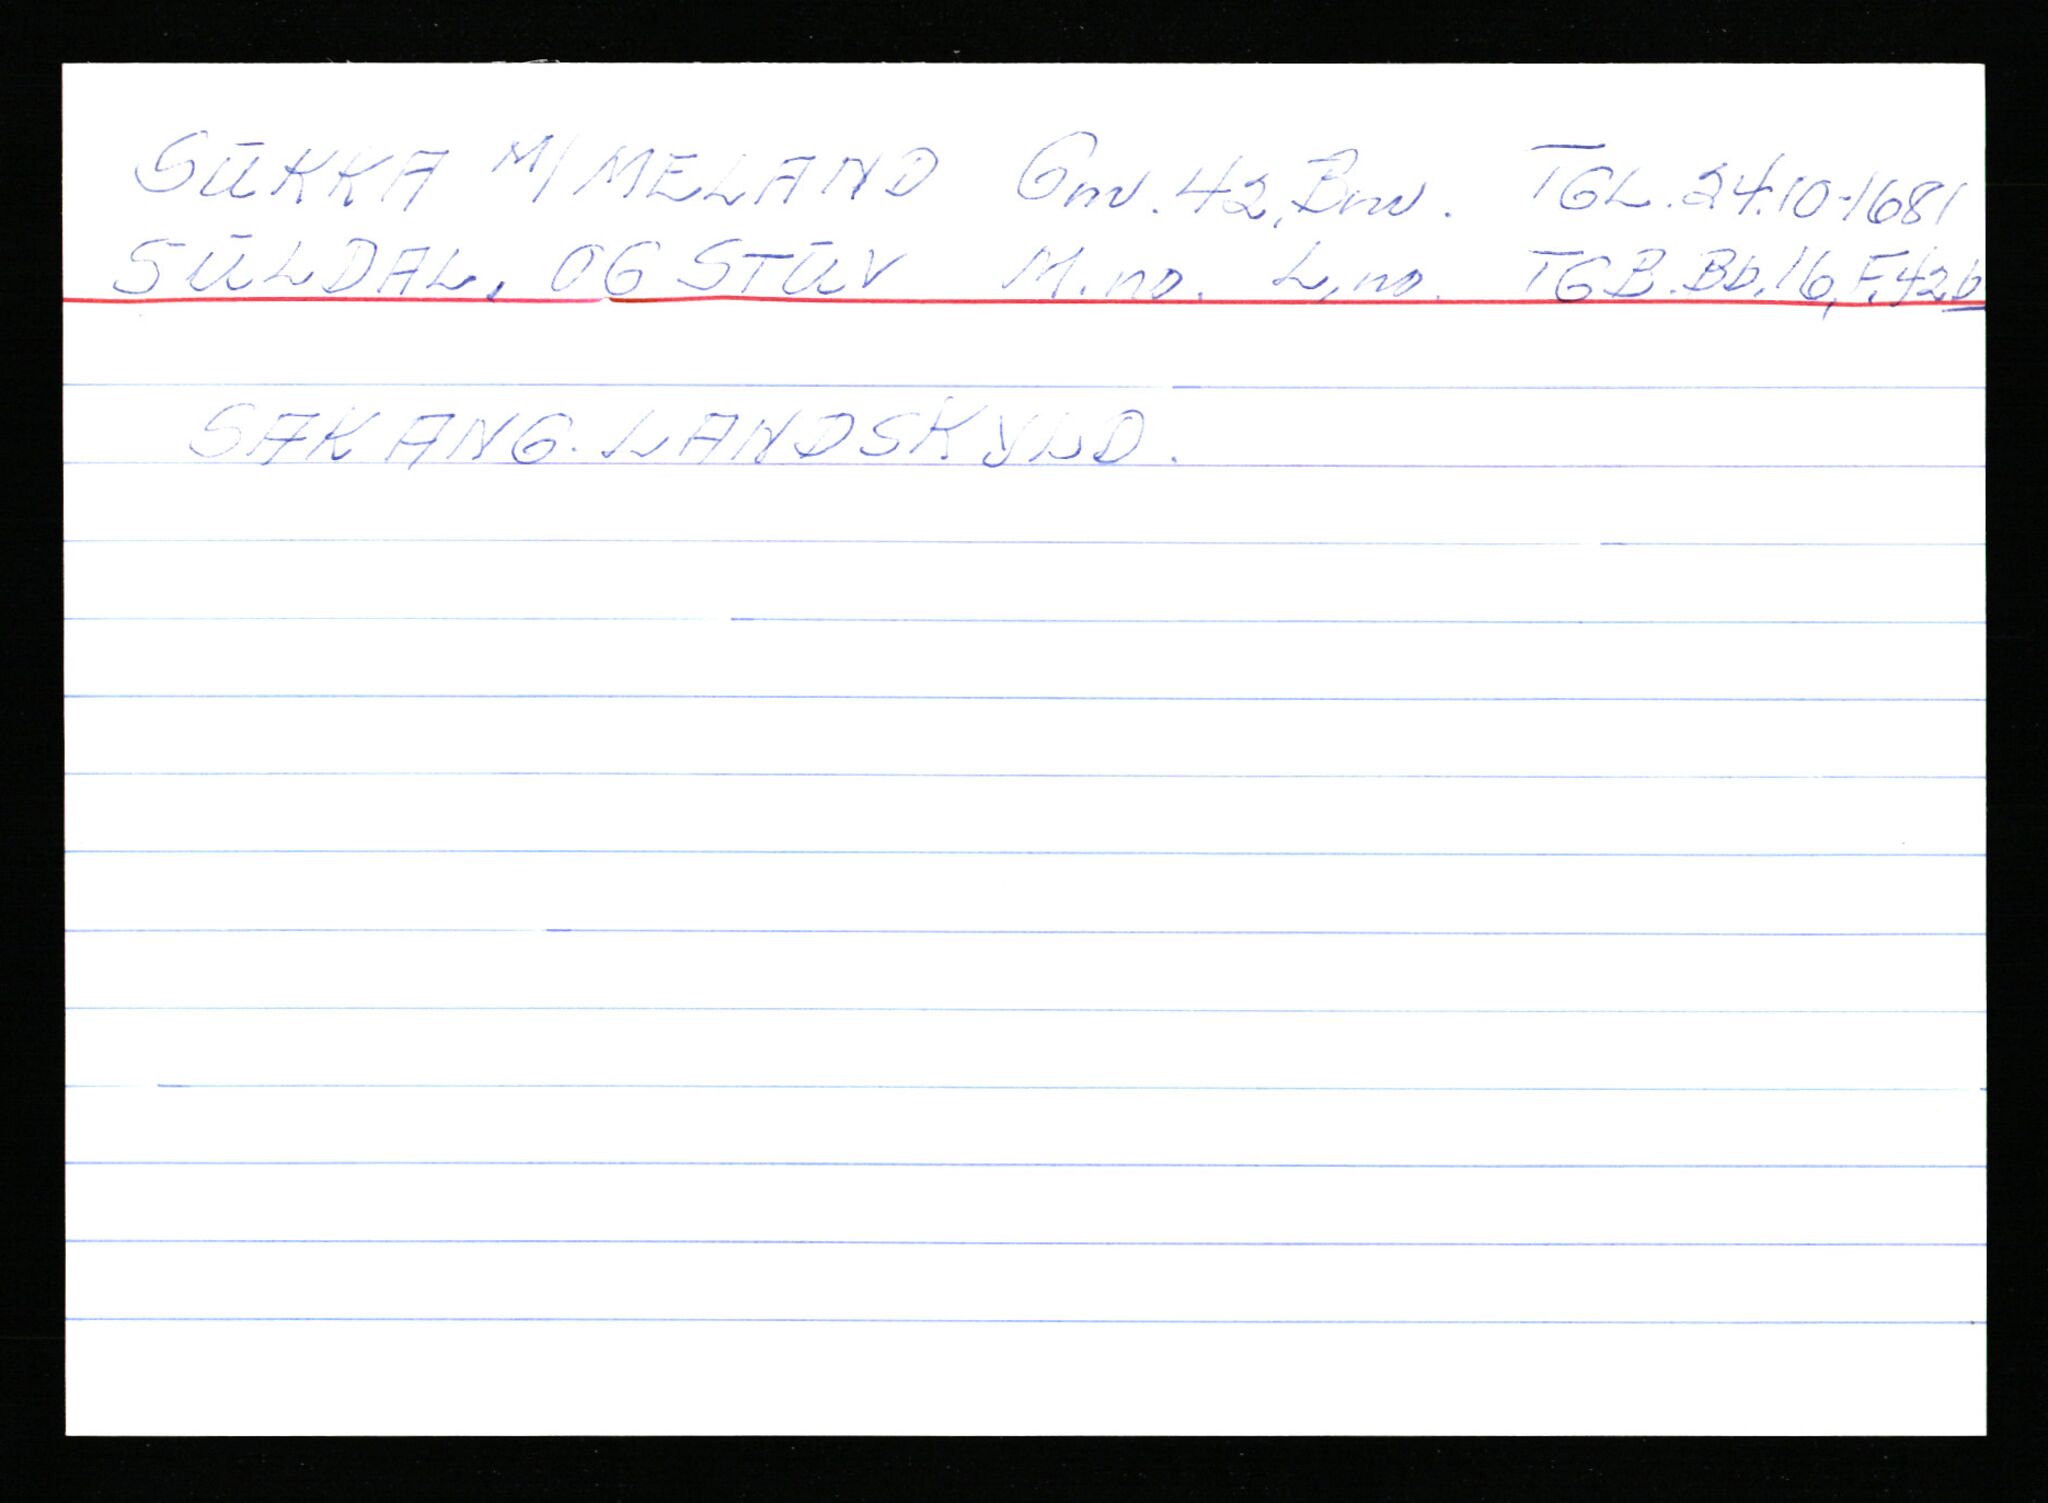 SŪKKA M/MELAND Gnr. 42, Bnr. TGL. 24.10-1681
SŪLDAL, OG STŪV M.no. L,no. TGB. Bb.16, F.42b
SAK ANG. LANDSKYLD.